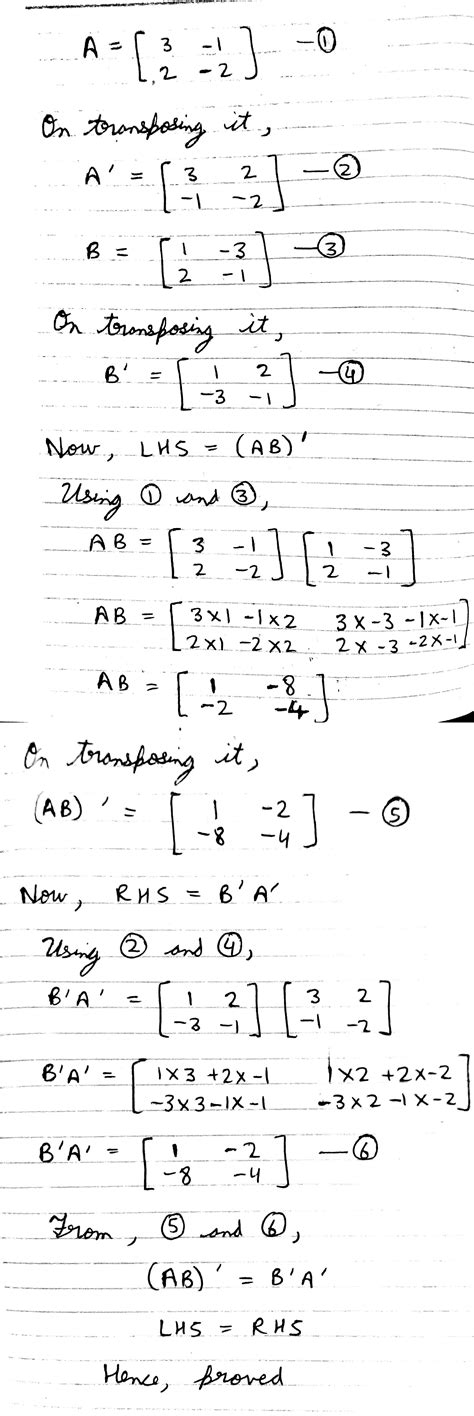 A = [ 3 -1 ; 2 -2 ] — ①
On transposing it,
A' = [ 3 2 ; -1 -2 ] — ②
B = [ 1 -3 ; 2 -1 ] — ③
On transposing it,
B' = [ 1 2 ; -3 -1 ] — ④
Now, LHS = (AB)'
Using ① and ③,
AB = [ 3 -1 ; 2 -2 ] [ 1 -3 ; 2 -1 ]
AB = [ 3×1 -1×2 3×-3 -1×-1 ; 2×1 -2×2 2×-3 -2×-1 ]
AB = [ 1 -8 ; -2 -4 ]
On transposing it,
(AB)' = [ 1 -2 ; -8 -4 ] — ⑤
Now, RHS = B'A'
Using ② and ④,
B'A' = [ 1 2 ; -3 -1 ] [ 3 2 ; -1 -2 ]
B'A' = [ 1×3 +2×-1 1×2 +2×-2 ; -3×3-1×-1 -3×2 -1×-2 ]
B'A' = [ 1 -2 ; -8 -4 ] — ⑥
From, ⑤ and ⑥,
(AB)' = B'A'
LHS = RHS
Hence, proved